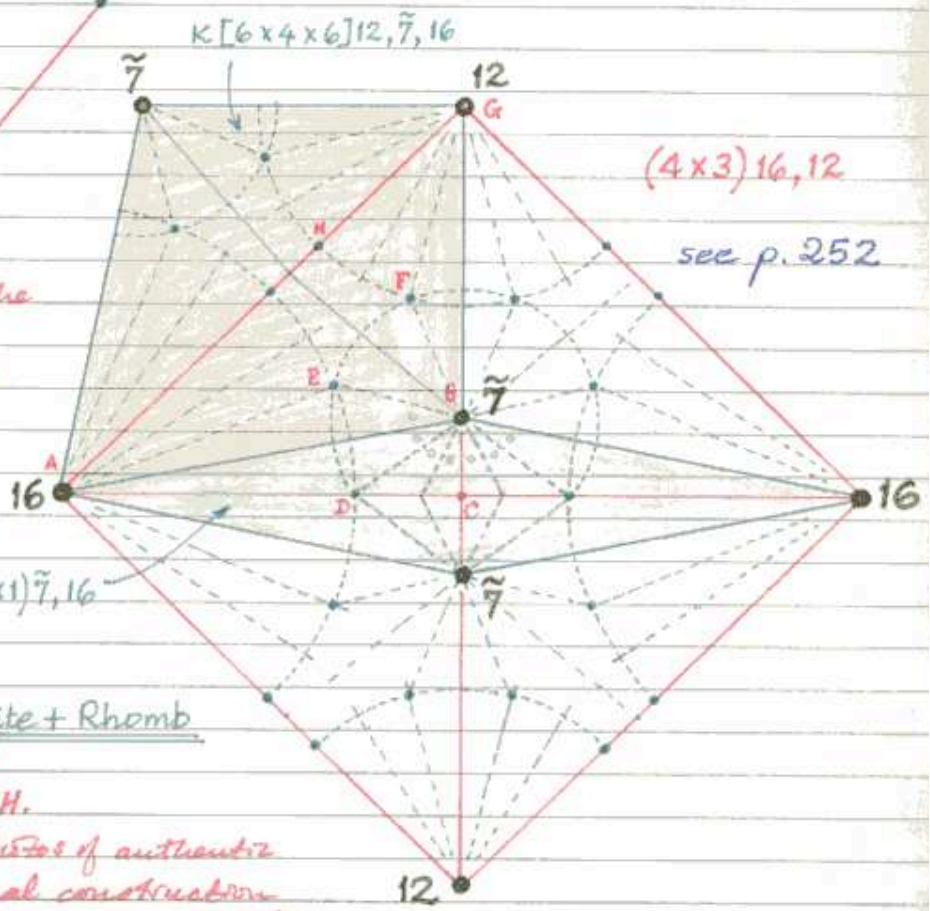 K[6×4×6]12,7̃,16
7̃
12
G
(4×3)16,12
H
see p. 252
F
E
B
7̃
A
16
D
C
16
1)7̃,16
7̃
+ Rhomb
H.
of authentic
construction
12